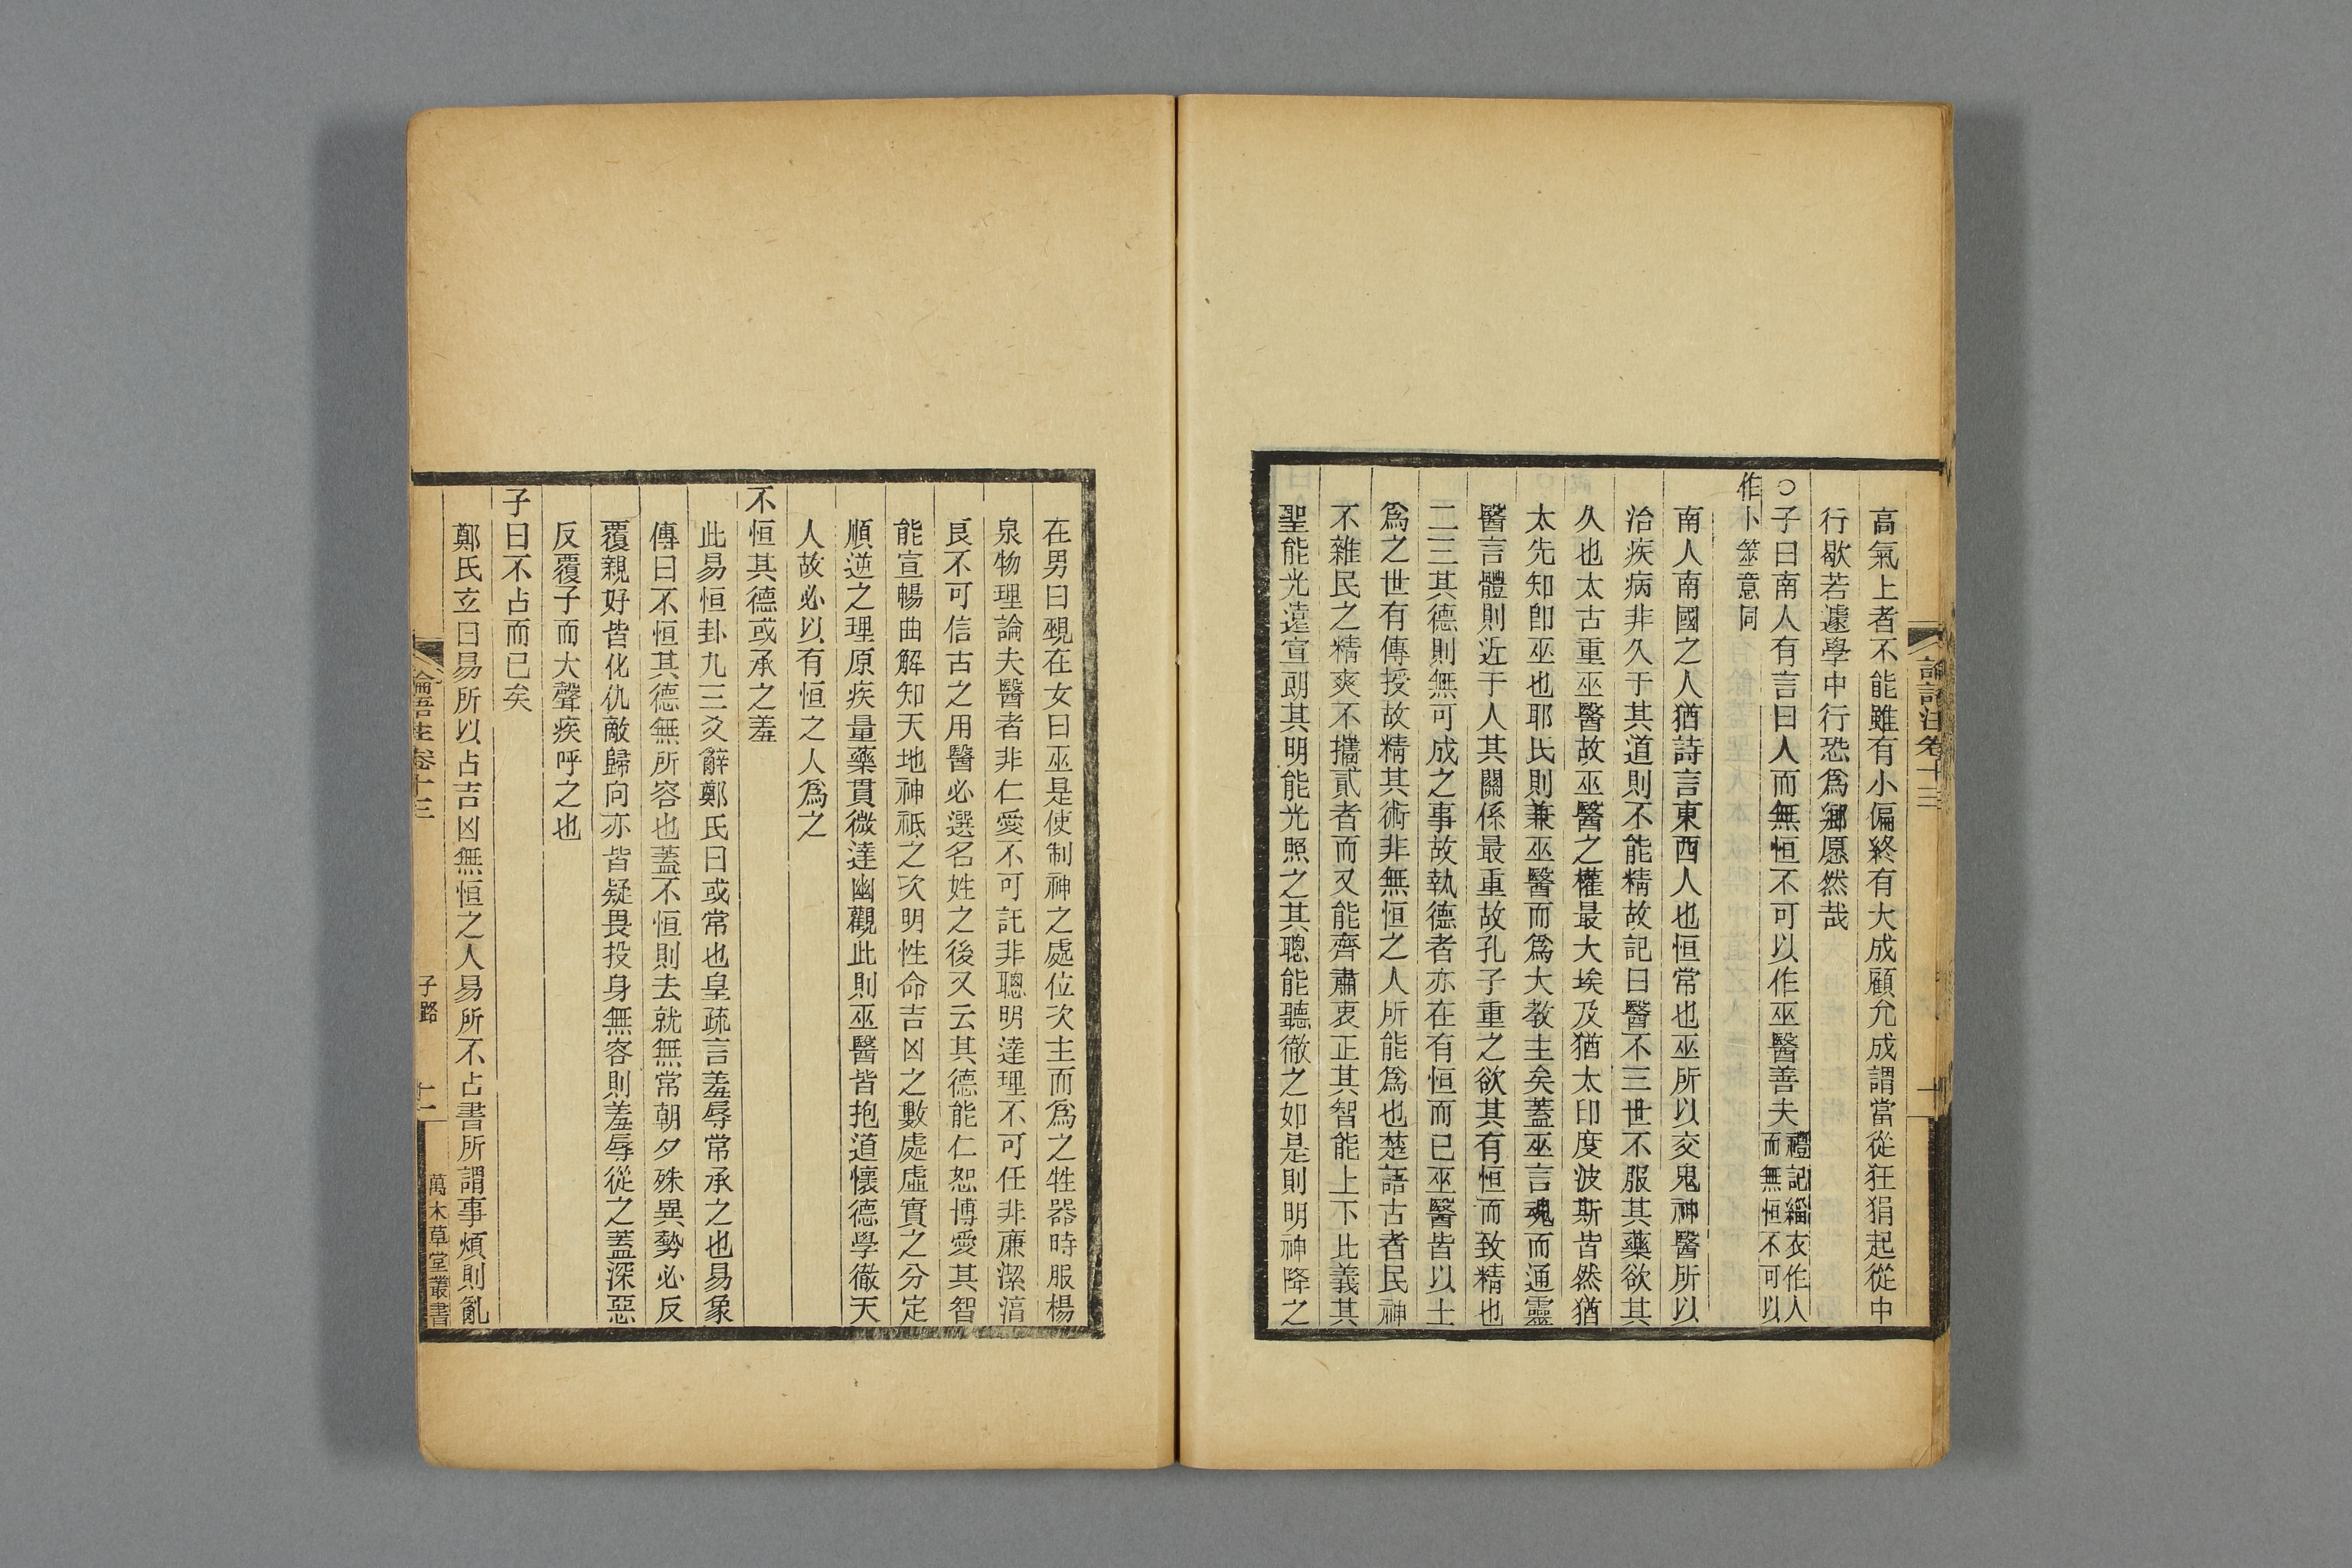 論語注卷十三
高氣上者不能雖有小偏終有大成顧允成謂當從狂狷起從中
行歇若遽學中行恐爲鄉愿然哉
○子曰南人有言曰人而無恒不可以作巫醫善夫禮記緇衣作人
而無恒不可以
作卜筮意同
南人南國之人猶詩言東西人也恒常也巫所以交鬼神醫所以
治疾病非久于其道則不能精故記曰醫不三世不服其藥欲其
久也太古重巫醫故巫醫之權最大埃及猶太印度波斯皆然猶
太先知卽巫也耶氏則兼巫醫而爲大教主矣蓋巫言魂而通靈
醫言體則近于人其關係最重故孔子重之欲其有恒而致精也
二三其德則無可成之事故執德者亦在有恒而已巫醫皆以士
爲之世有傳授故精其術非無恒之人所能爲也楚語古者民神
不雜民之精爽不攜貳者而又能齊肅衷正其智能上下比義其
聖能光遠宣朗其明能光照之其聰能聽徹之如是則明神降之
在男曰覡在女曰巫是使制神之處位次主而爲之牲器時服楊
泉物理論夫醫者非仁愛不可託非聰明達理不可任非廉潔淯
良不可信古之用醫必選名姓之後又云其德能仁恕博愛其智
能宣暢曲解知天地神祇之次明性命吉凶之數處虛實之分定
順逆之理原疾量藥貫微達幽觀此則巫醫皆抱道懷德學徹天
人故必以有恒之人爲之
不恒其德或承之羞
此易恒卦九三爻辭鄭氏曰或常也皇疏言羞辱常承之也易象
傳曰不恒其德無所容也蓋不恒則去就無常朝夕殊異勢必反
覆親好皆化仇敵歸向亦皆疑畏投身無容則羞辱從之蓋深惡
反覆子而大聲疾呼之也
子曰不占而已矣
鄭氏玄曰易所以占吉凶無恒之人易所不占書所謂事煩則亂
論語注卷十三
子路
十一
萬木草堂叢書